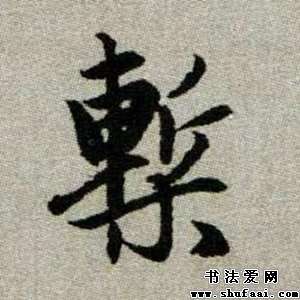 槧
书法爱网
www.shufaai.com